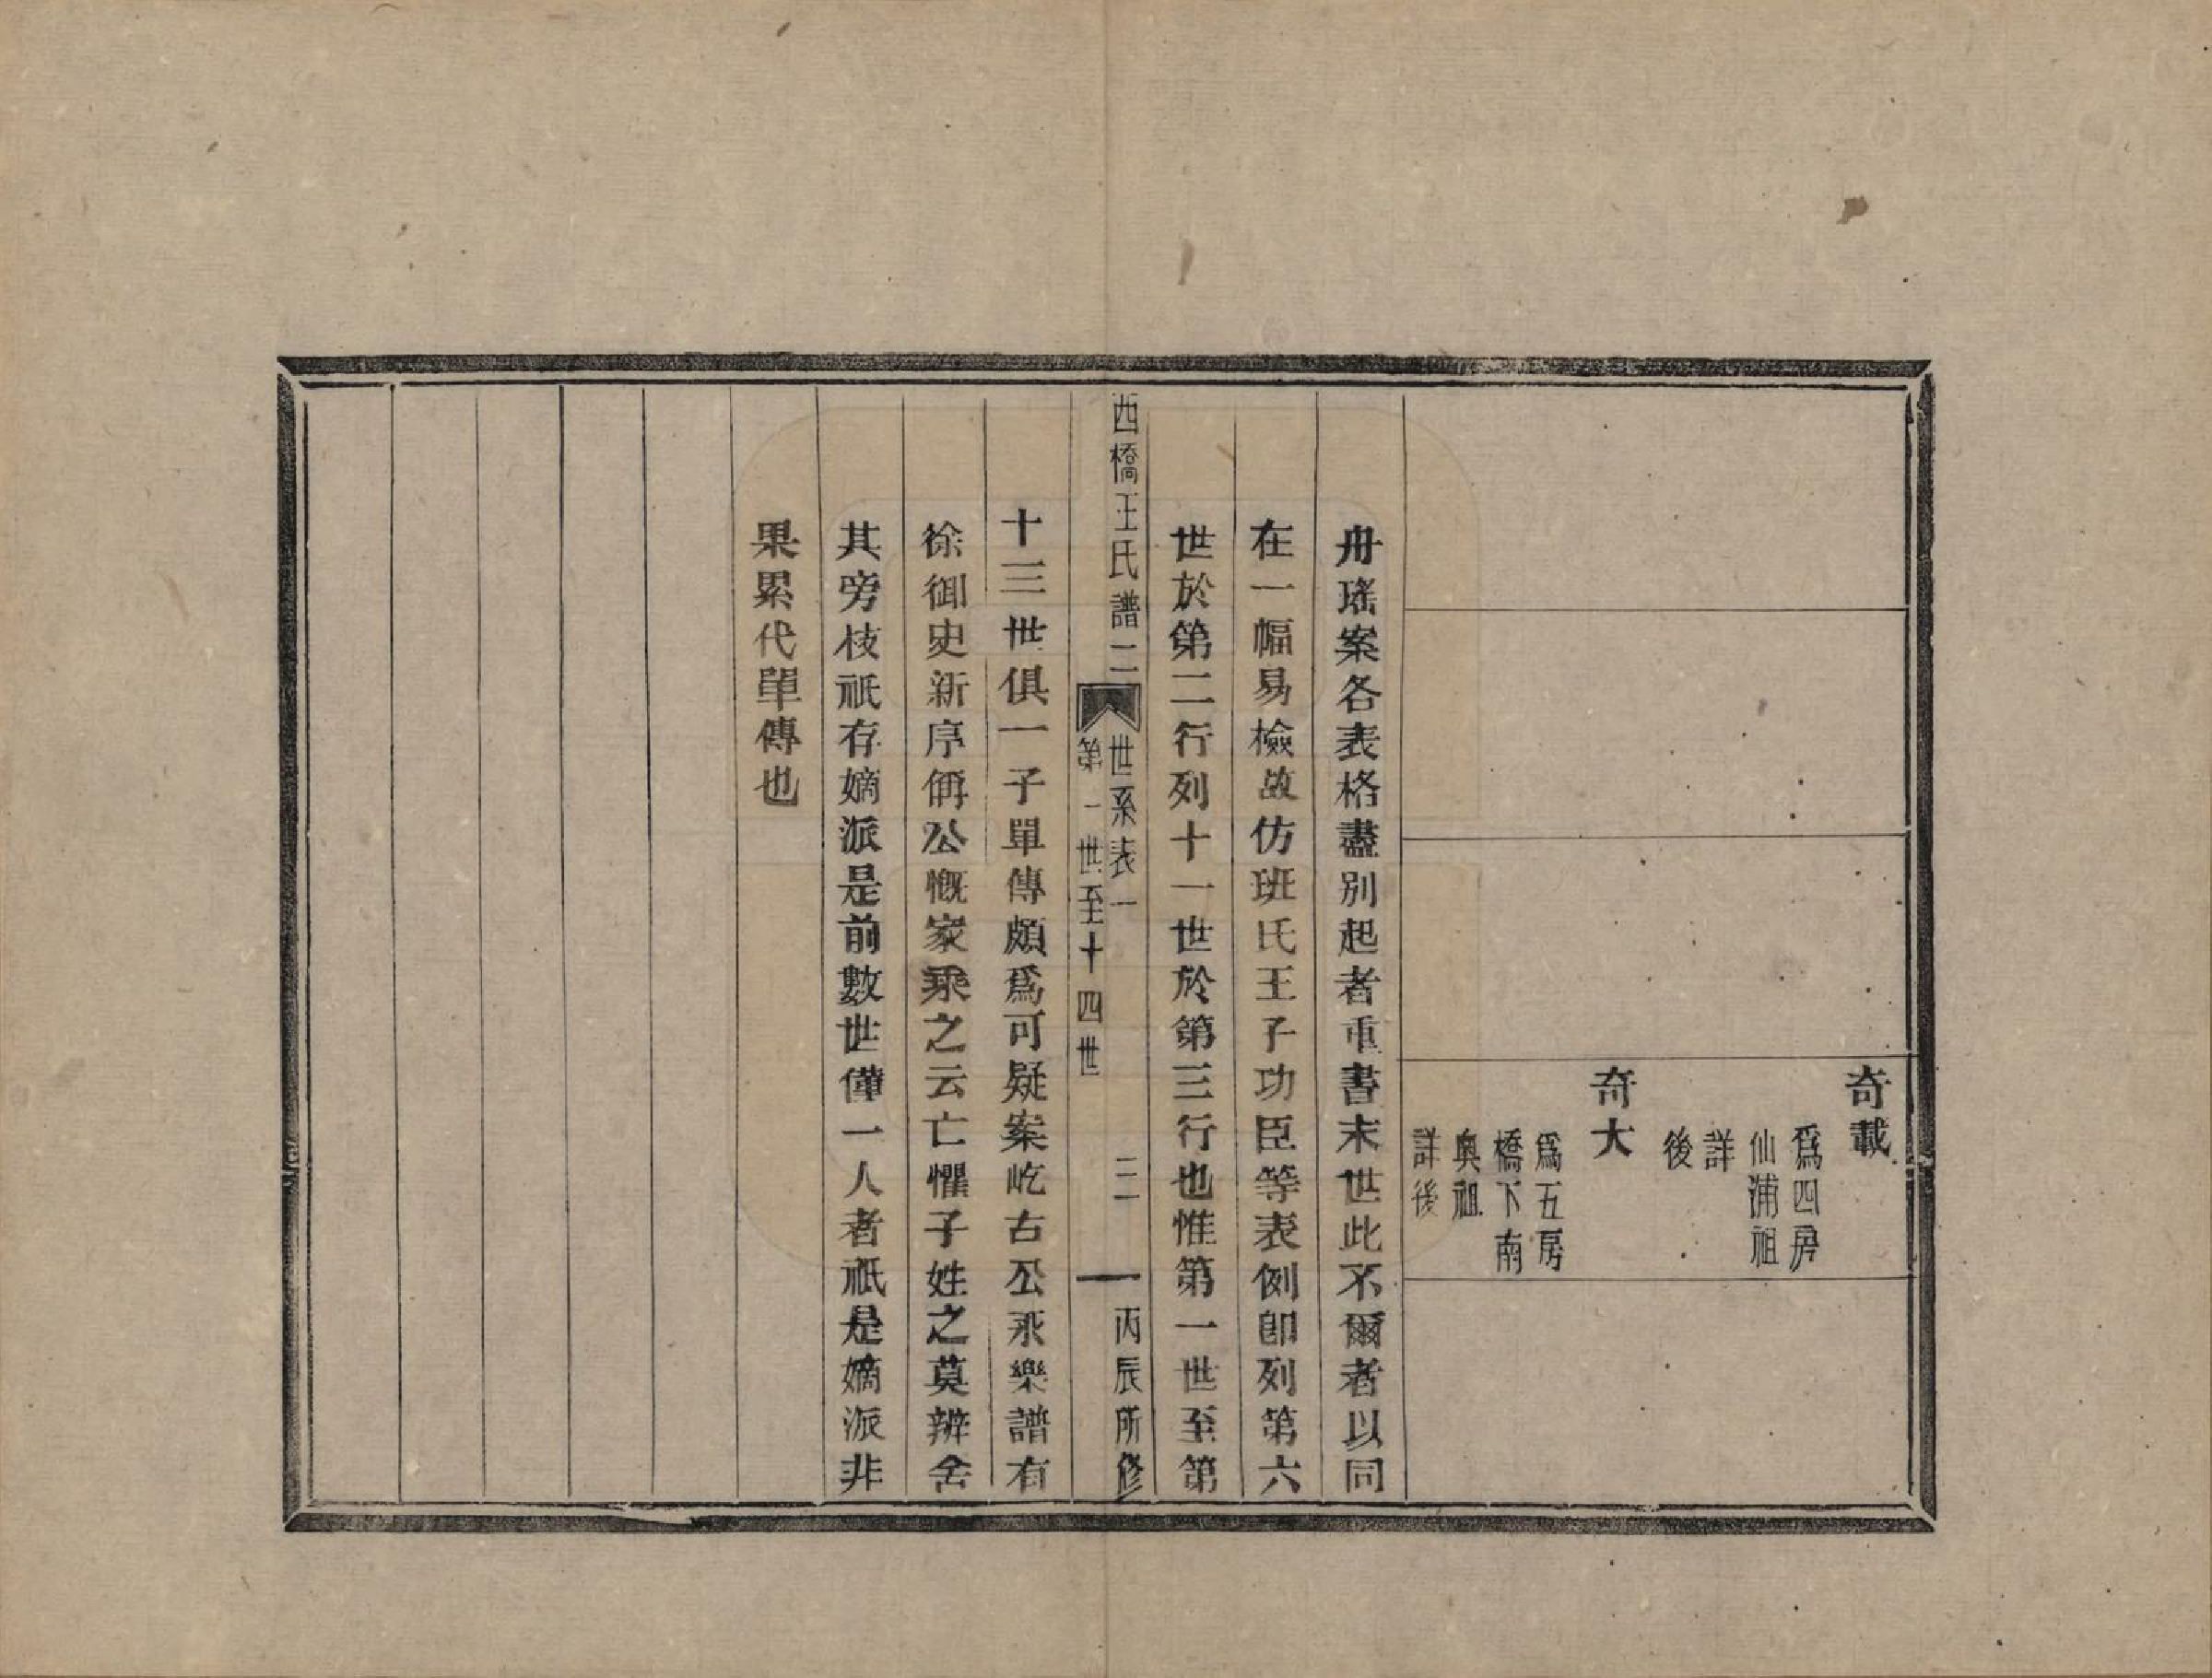 奇載
爲四房
仙浦祖
詳
後
奇大
爲五房
橋下南
奥祖
詳後
舟瑤案各表格盡別起者重書末世此不爾者以同
在一幅易檢故仿班氏王子功臣等表例卽列第六
世於第二行列十一世於第三行也惟第一世至第
西橋王氏譜二
世系表一
第一世至十四世
二
丙辰所修
十三世俱一子單傳頗爲可疑案屹古公永樂譜有
徐御史新序偁公慨家乘之云亡懼子姓之莫辨舍
其旁枝祇存嫡派是前數世僅一人者祇是嫡派非
果累代單傳也